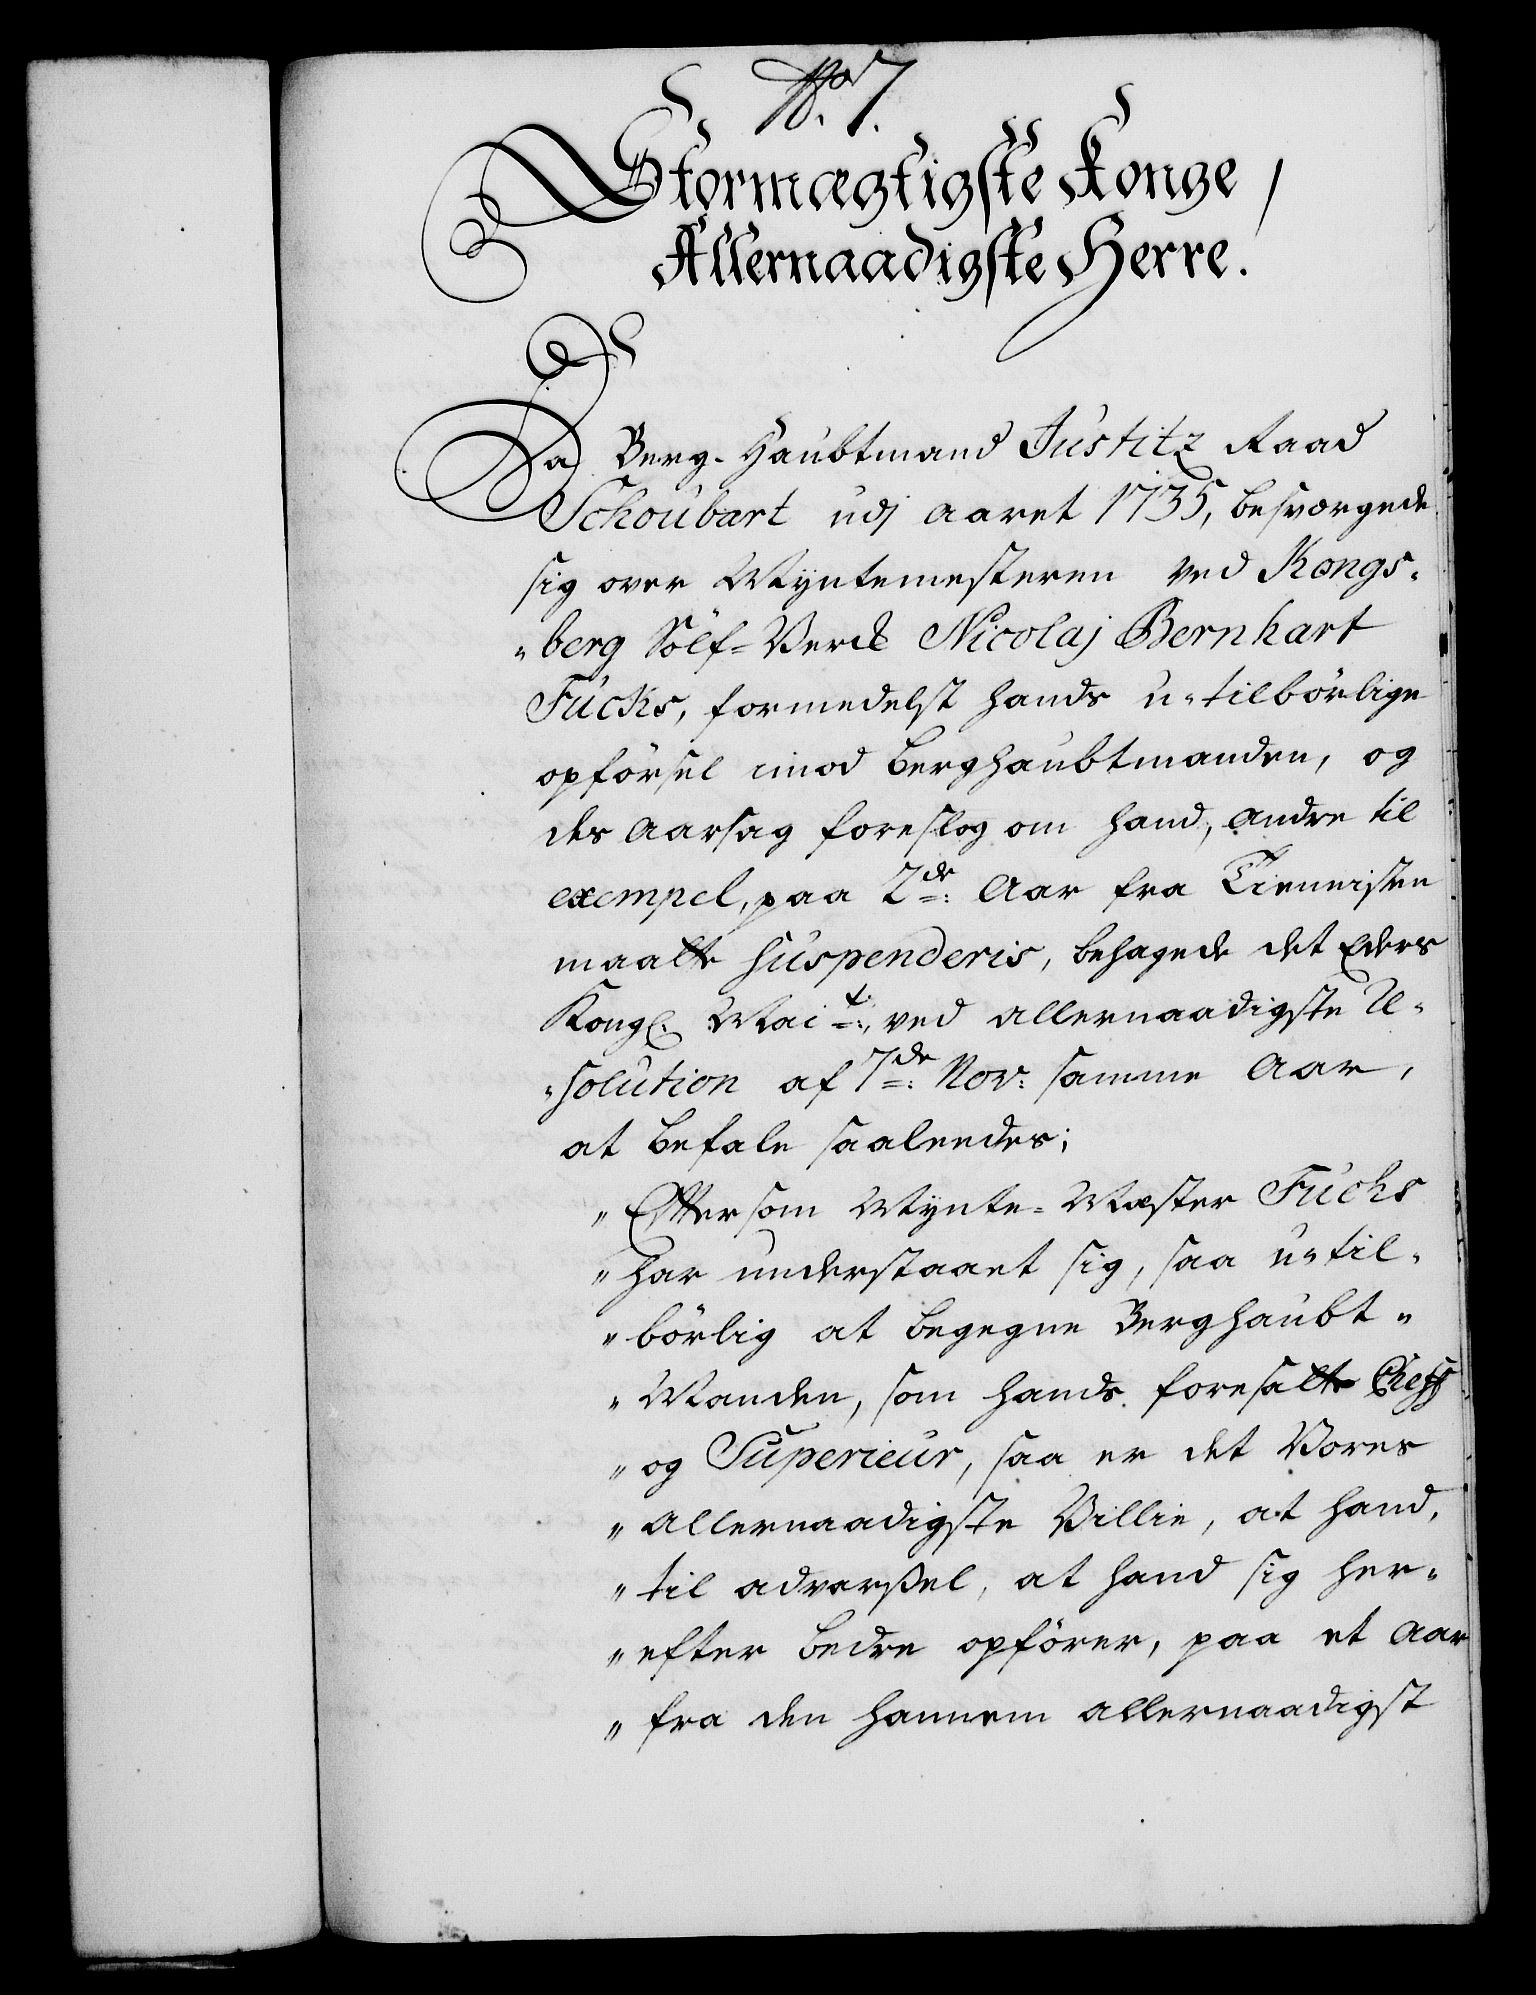 No. 7.
Stormægtigste Konge /
Allernaadigste Herre.
Da Berg-Haubtmand Justitz Raad
Schoubart udj Aaret 1735, besværgede
sig over Myntemesteren ved Kongs-
"berg Sölf-Verck Nicolaj Bernhart
Fucks, formedelst hands u-tilbörlige
opförsel imod Berghaubtmanden, og
des Aarsag foreslog om hand, andre til
exempel, paa 2de: Aar fra Tienneisten
maatte suspenderis, behagede det Eders
Kongl. Mait:, ved allernaadigste Re-
"solution af 7de: Nov: samme Aar,
at befale saaleedes;
" Efftersom Mynte-Mester Fuchs
" har understaaet sig, saa u-til-
" börlig at begegne Berghaubt-
" Manden, som hands foresatte Cheff
" og Superieur, saa er det Vores
" allernaadigste Villie, at hand,
" til advarßel, at hand sig her-
" efter bedre opförer, paa et Aar
" fra den hannem allernaadigst